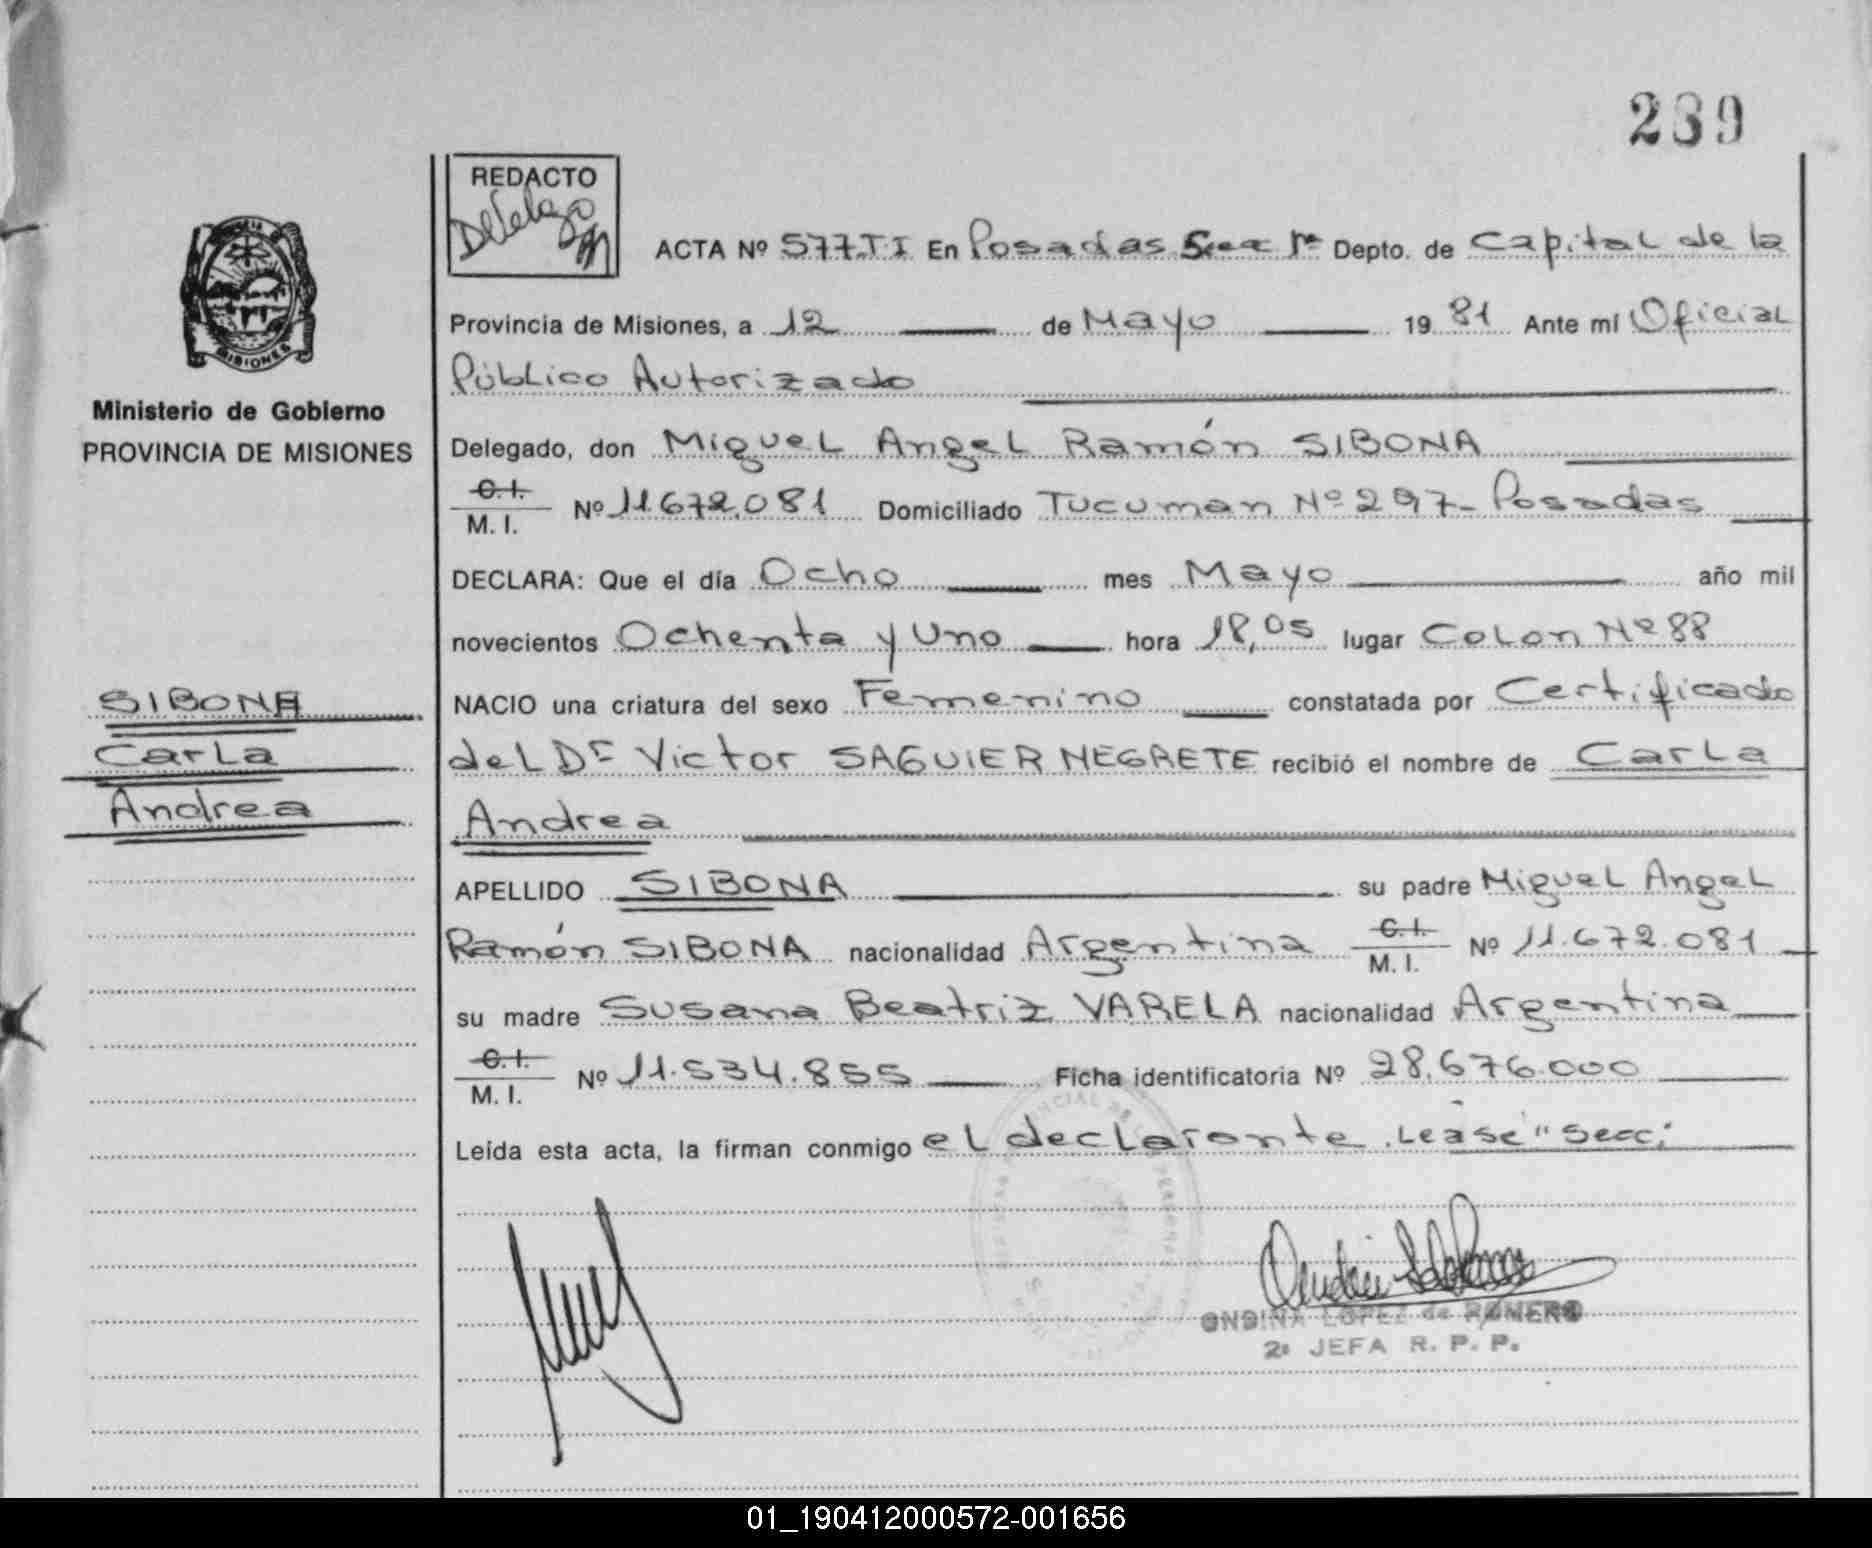 239
REDACTO
ACTA Nº 577.T I En Posadas Secc 1ª Depto. de Capital de la
Provincia de Misiones, a 12 de Mayo 1981 Ante mí Oficial
Público Autorizado
MISIONES
Ministerio de Gobierno
PROVINCIA DE MISIONES
Delegado, don Miguel Angel Ramón SIBONA
C. I.
M. I. Nº 11.672.081 Domiciliado Tucuman Nº 297- Posadas
DECLARA: Que el día Ocho mes Mayo año mil
novecientos Ochenta y Uno hora 18,05 lugar Colon Nº 88
SIBONA
Carla
Andrea
NACIO una criatura del sexo Femenino constatada por Certificado
del Dr Victor SAGUIER NEGRETE recibió el nombre de Carla
Andrea
APELLIDO SIBONA su padre Miguel Angel
Ramón SIBONA nacionalidad Argentina C. I. M. I. Nº 11.672.081
su madre Susana Beatriz VARELA nacionalidad Argentina
C. I.
M. I. Nº 11.534.855 Ficha identificatoria Nº 28.676.000
Leída esta acta, la firman conmigo el declarante. Lease "Secc;
ONDINA LOPEZ de ROMERO
2ª JEFA R. P. P.
01_190412000572-001656